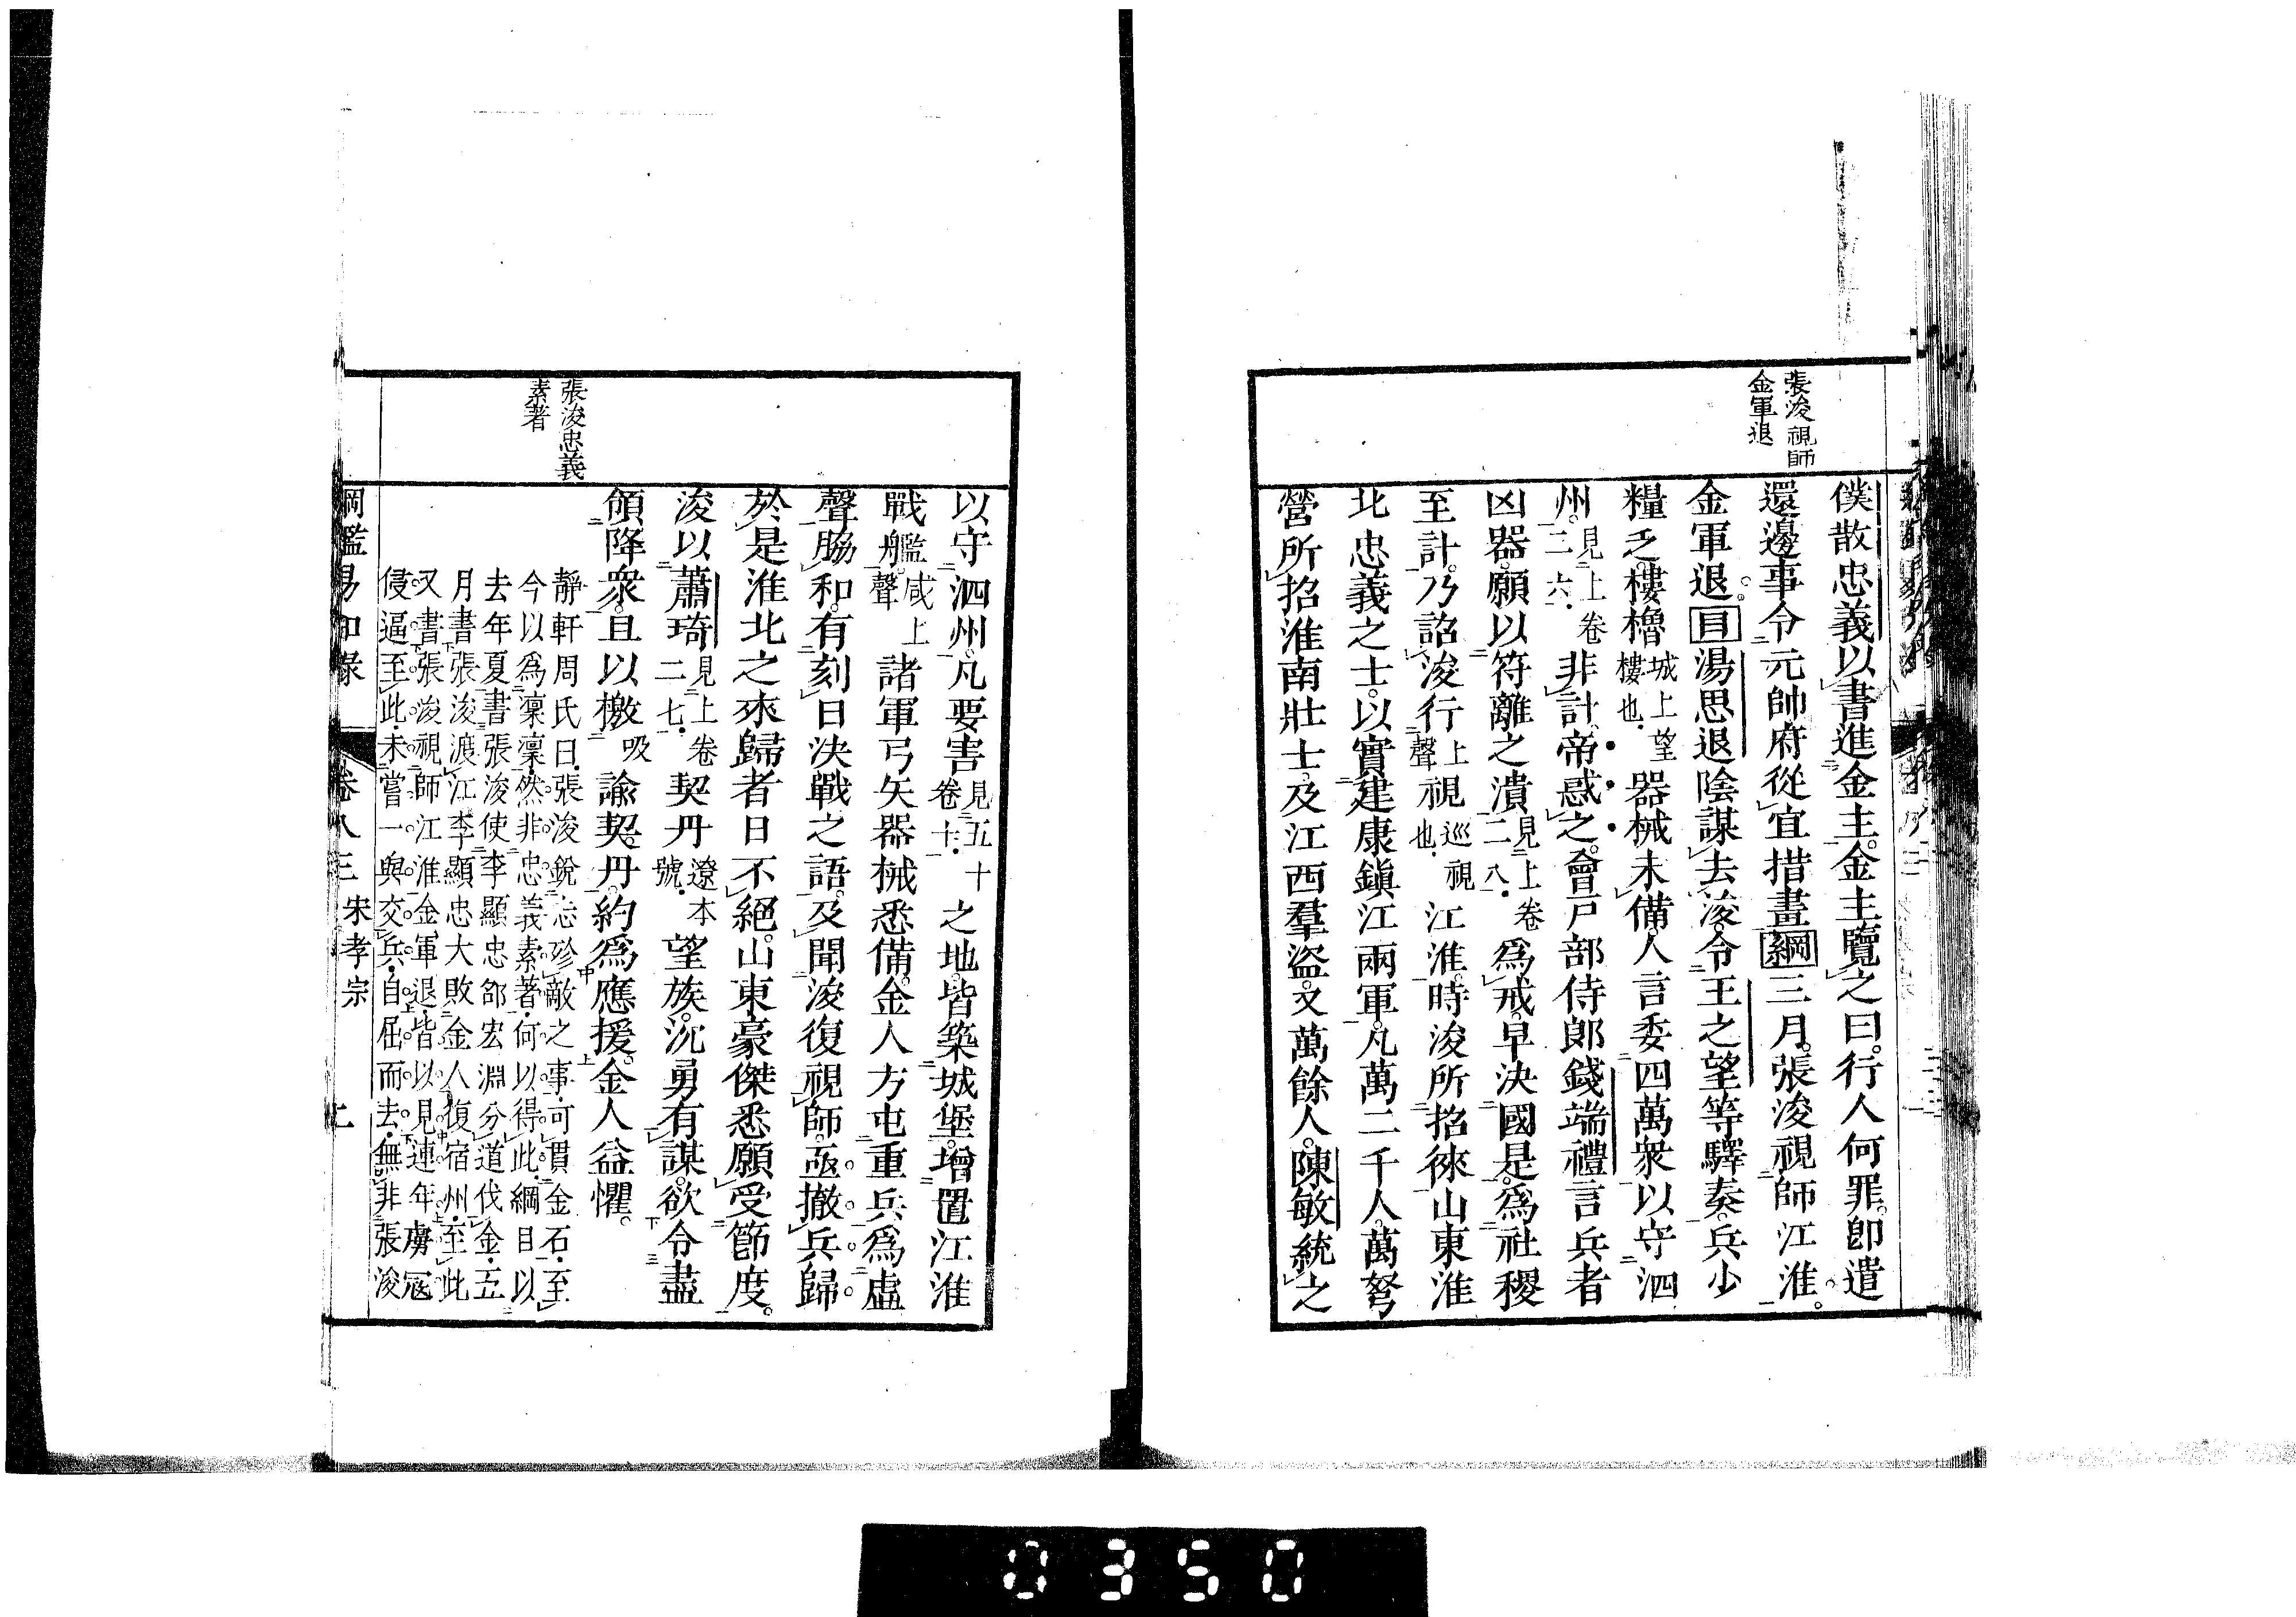 張浚視師
金軍退
僕散忠義以書進金主。金主覽之曰。行人何罪。卽遣
還邊事令元帥府從宜措畫綱三月。張浚視師江淮。
金軍退。目湯思退陰謀去浚。令王之望等驛奏。兵少
糧乏。樓櫓城上望樓也。器械未備。人言委四萬衆以守泗
州。見上卷二六。非計。帝惑之。會戸部侍郞錢端禮言兵者
凶器。願以符離之潰見上卷二八。爲戒。早決國是。爲社稷
至計。乃詔浚行上聲視巡視也。江淮。時浚所招徠山東淮
北忠義之士。以實建康鎭江兩軍。凡萬二千人。萬弩
營所招淮南壯士。及江西羣盜。又萬餘人。陳敏統之
張浚忠義
素著
以守泗州。凡要害見五十卷十。之地。皆築城堡。增置江淮
戰艦。咸上聲諸軍弓矢器械悉備。金人方屯重兵。爲虛
聲脇和。有刻日決戰之語。及聞浚復視師。亟撤兵歸。
於是淮北之來歸者日不絕。山東豪傑悉願受節度。
浚以蕭琦見上卷二七。契丹遼本號。望族。沉勇有謀。欲令盡
領降衆。且以檄吸諭契丹。約爲應援。金人益懼。
靜軒周氏曰。張浚銳志殄敵之事。可貫金石。至
今以爲凜凜然。非忠義素著。何以得此。綱目以
去年夏書張浚使李顯忠邵宏淵分道伐金。五
月書張浚渡江李顯忠大敗金人復宿州。至此
又書張浚視師江淮金軍退。皆以見連年虜寇
侵逼至此。未嘗一與交兵。自屈而去。無非張浚
綱鑑易知錄 卷八三 宋孝宗